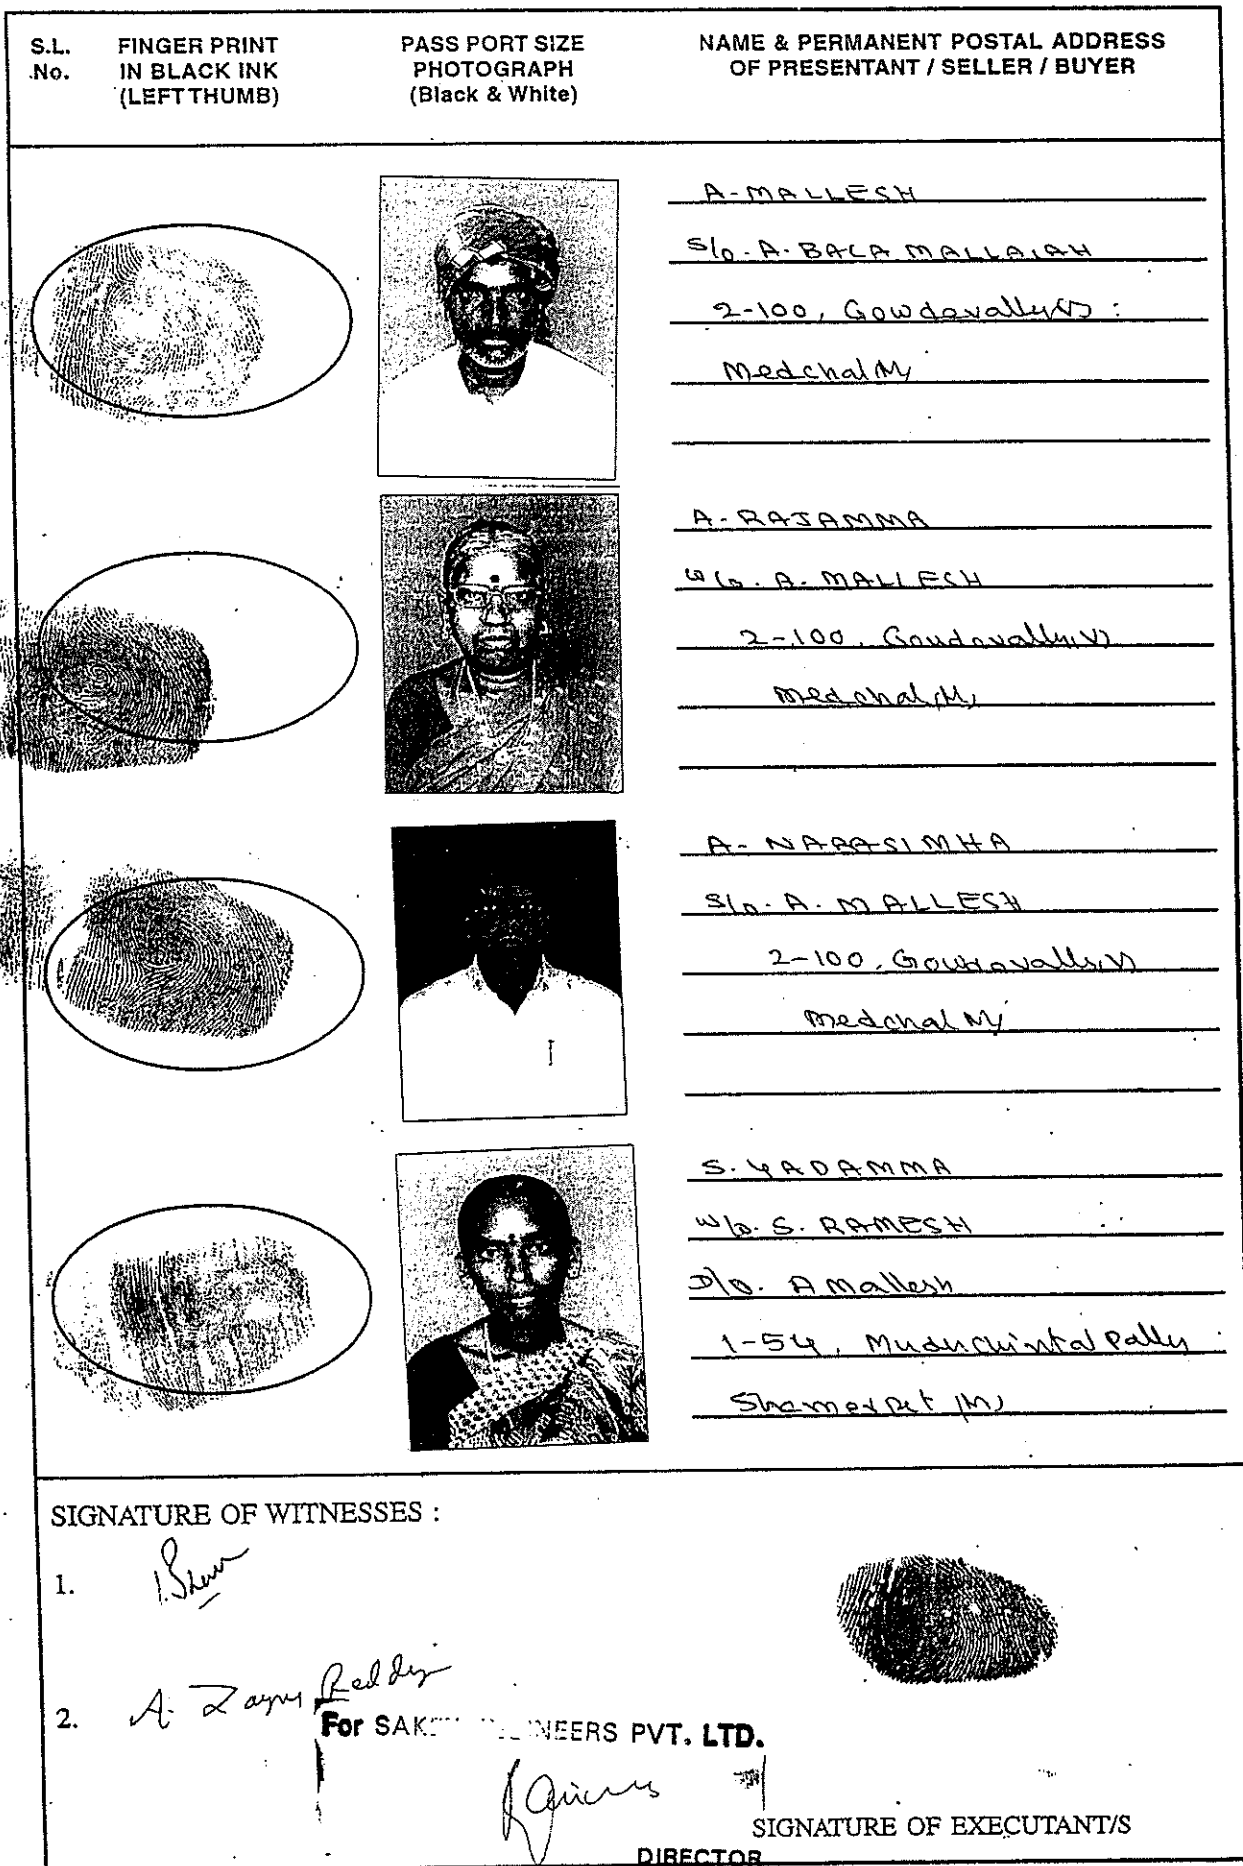 S.L. No.
FINGER PRINT IN BLACK INK (LEFT THUMB)
PASS PORT SIZE PHOTOGRAPH (Black & White)
NAME & PERMANENT POSTAL ADDRESS OF PRESENTANT / SELLER / BUYER
A-MALLESH
S/o. A. BALA MALLAIAH
2-100, Gowdavally(V)
Medchal (M)
A-RAJAMMA
W/o. A. MALLESH
2-100, Goudavally(V)
Medchal (M)
A-NARASIMHA
S/o. A. MALLESH
2-100, Gowdavally(V)
Medchal (M)
S. YADAMMA
W/o. S. RAMESH
D/o. A Mallesh
1-54, Muduchintal Pally
Shamerpet (M)
SIGNATURE OF WITNESSES :
1.
2. A. Reddy
For SAK NEERS PVT. LTD.
SIGNATURE OF EXECUTANT/S
DIRECTOR